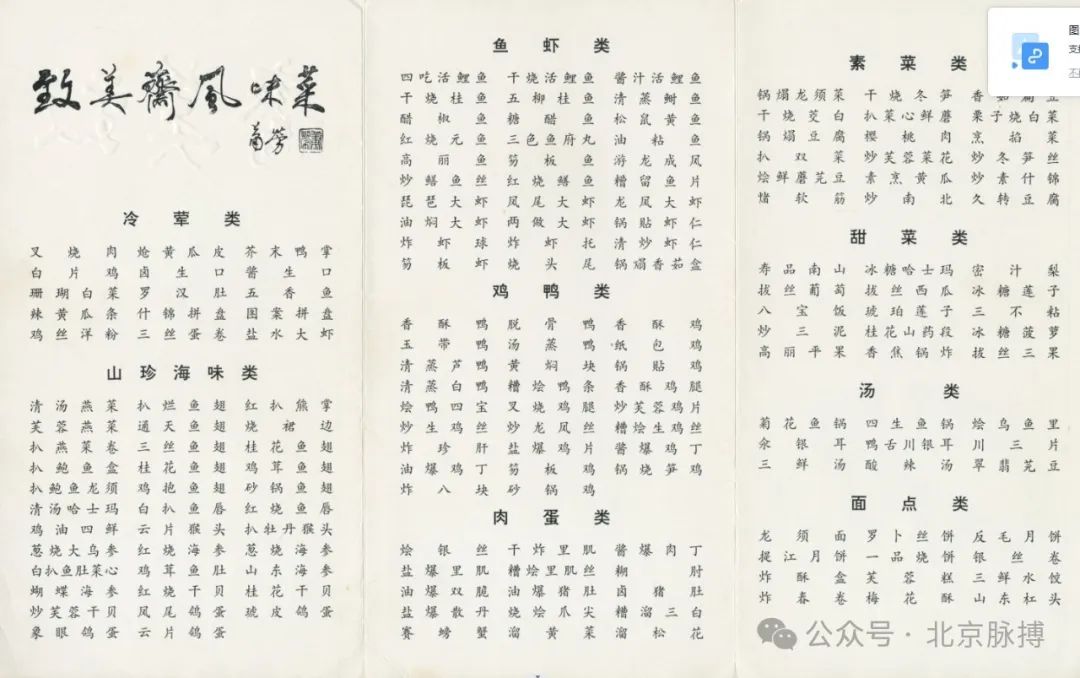 致美斋风味菜
冷荤类
叉烧肉 炝黄瓜皮 芥末鸭掌
白片鸡 卤生口 酱生口
珊瑚白菜 罗汉肚 五香鱼
辣黄瓜条 什锦拼盘 图案拼盘
鸡丝洋粉 三丝蛋卷 盐水大虾
山珍海味类
清汤燕菜 扒烂鱼翅 红扒熊掌
芙蓉燕菜 通天鱼翅 烧裙边
扒燕菜卷 三丝鱼翅 桂花鱼翅
扒鲍鱼盒 桂花鱼翅 鸡茸鱼翅
扒鲍鱼龙须 鸡抱鱼翅 砂锅鱼翅
清汤哈士玛 白扒鱼唇 红烧鱼唇
鸡油四鲜 云片猴头 扒牡丹猴头
葱烧大乌参 红烧海参 葱烧海参
白扒鱼肚菜心 鸡茸鱼肚 山东海参
蝴蝶海参 红烧干贝 桂花干贝
炒芙蓉干贝 凤尾鸽蛋 琥皮鸽蛋
象眼鸽蛋 云片鸽蛋
鱼虾类
四吃活鲤鱼 干烧活鲤鱼 酱汁活鲤鱼
干烧桂鱼 五柳桂鱼 清蒸鲥鱼
醋椒鱼 糖醋鱼 松鼠黄鱼
红烧元鱼 三色鱼府丸 油粘鱼
高丽鱼 笏板鱼 游龙戏凤
炒鳝鱼丝 红烧鳝鱼 糟留鱼片
琵琶大虾 凤尾大虾 龙凤大虾
油焖大虾 两做大虾 锅贴虾仁
炸虾球 炸虾托 清炒虾仁
笏板虾 烧头尾 锅塌香茹盒
鸡鸭类
香酥鸭 脱骨鸭 香酥鸡
玉带鸭 汤蒸鸭 纸包鸡
清蒸芦鸭 黄焖块 锅贴鸡
清蒸白鸭 糟烩鸭条 香酥鸡腿
烩鸭四宝 叉烧鸡腿 炒芙蓉鸡片
炒生鸡丝 炒龙凤丝 糟烩生鸡丝
炸珍肝 盐爆鸡片 酱爆鸡丁
油爆鸡丁 笏板鸡 锅烧笋鸡
炸八块 砂锅鸡
肉蛋类
烩银丝 干炸里肌 酱爆肉丁
盐爆里肌 糟烩里肌丝 糊肘
油爆双脆 油爆猪肚 卤猪肚
盐爆散丹 烧烩爪尖 糟溜三白
赛螃蟹 溜黄菜 溜松花
素菜类
锅塌龙须菜 干烧冬笋
干烧茭白 扒菜心鲜蘑 栗子烧白菜
锅塌豆腐 樱桃肉 烹掐菜
扒双菜 炒芙蓉菜花 炒冬笋丝
烩鲜蘑芫豆 素烹黄瓜 炒素什锦
㸆软筋 炒南北 久转豆腐
甜菜类
寿品南山 冰糖哈士玛 密汁梨
拔丝葡萄 拔丝西瓜 冰糖莲子
八宝饭 琥珀莲子 三不粘
炒三泥 桂花山药段 冰糖菠萝
高丽平果 香焦锅炸 拔丝三果
汤类
菊花鱼锅 四生鱼锅 烩乌鱼里
氽银耳 鸭舌川银耳 川三片
三鲜汤 酸辣汤 翠翡芫豆
面点类
龙须面 罗卜丝饼 反毛月饼
提江月饼 一品烧饼 银丝卷
炸酥盒 芙蓉糕 三鲜水饺
炸春卷 梅花酥 山东杠头
公众号·北京脉搏